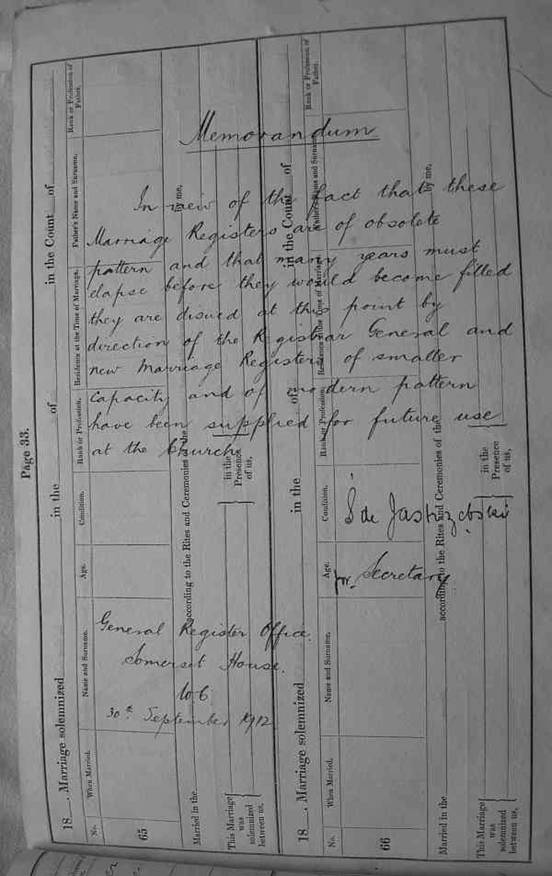 Memorandum
In view of the fact that these
Marriage Registers are of obsolete
pattern and that many years must
elapse before they would become filled
they are disused at this point by
direction of the Registrar General and
new Marriage Registers of smaller
capacity and of modern pattern
have been supplied for future use
at the Church.
S de Jastrzebski
for Secretary
General Register Office.
Somerset House.
W C
30th September 1912
Page 33.
18 . Marriage solemnized in the of in the Count of
No. When Married. Name and Surname. Age. Condition. Rank or Profession. Residence at the Time of Marriage. Father's Name and Surname. Rank or Profession of Father.
65
Married in the according to the Rites and Ceremonies of the by me,
This Marriage was solemnized between us, in the Presence of us,
18 . Marriage solemnized in the of in the Count of
No. When Married. Name and Surname. Age. Condition. Rank or Profession. Residence at the Time of Marriage. Father's Name and Surname. Rank or Profession of Father.
66
Married in the according to the Rites and Ceremonies of the by me,
This Marriage was solemnized between us, in the Presence of us,